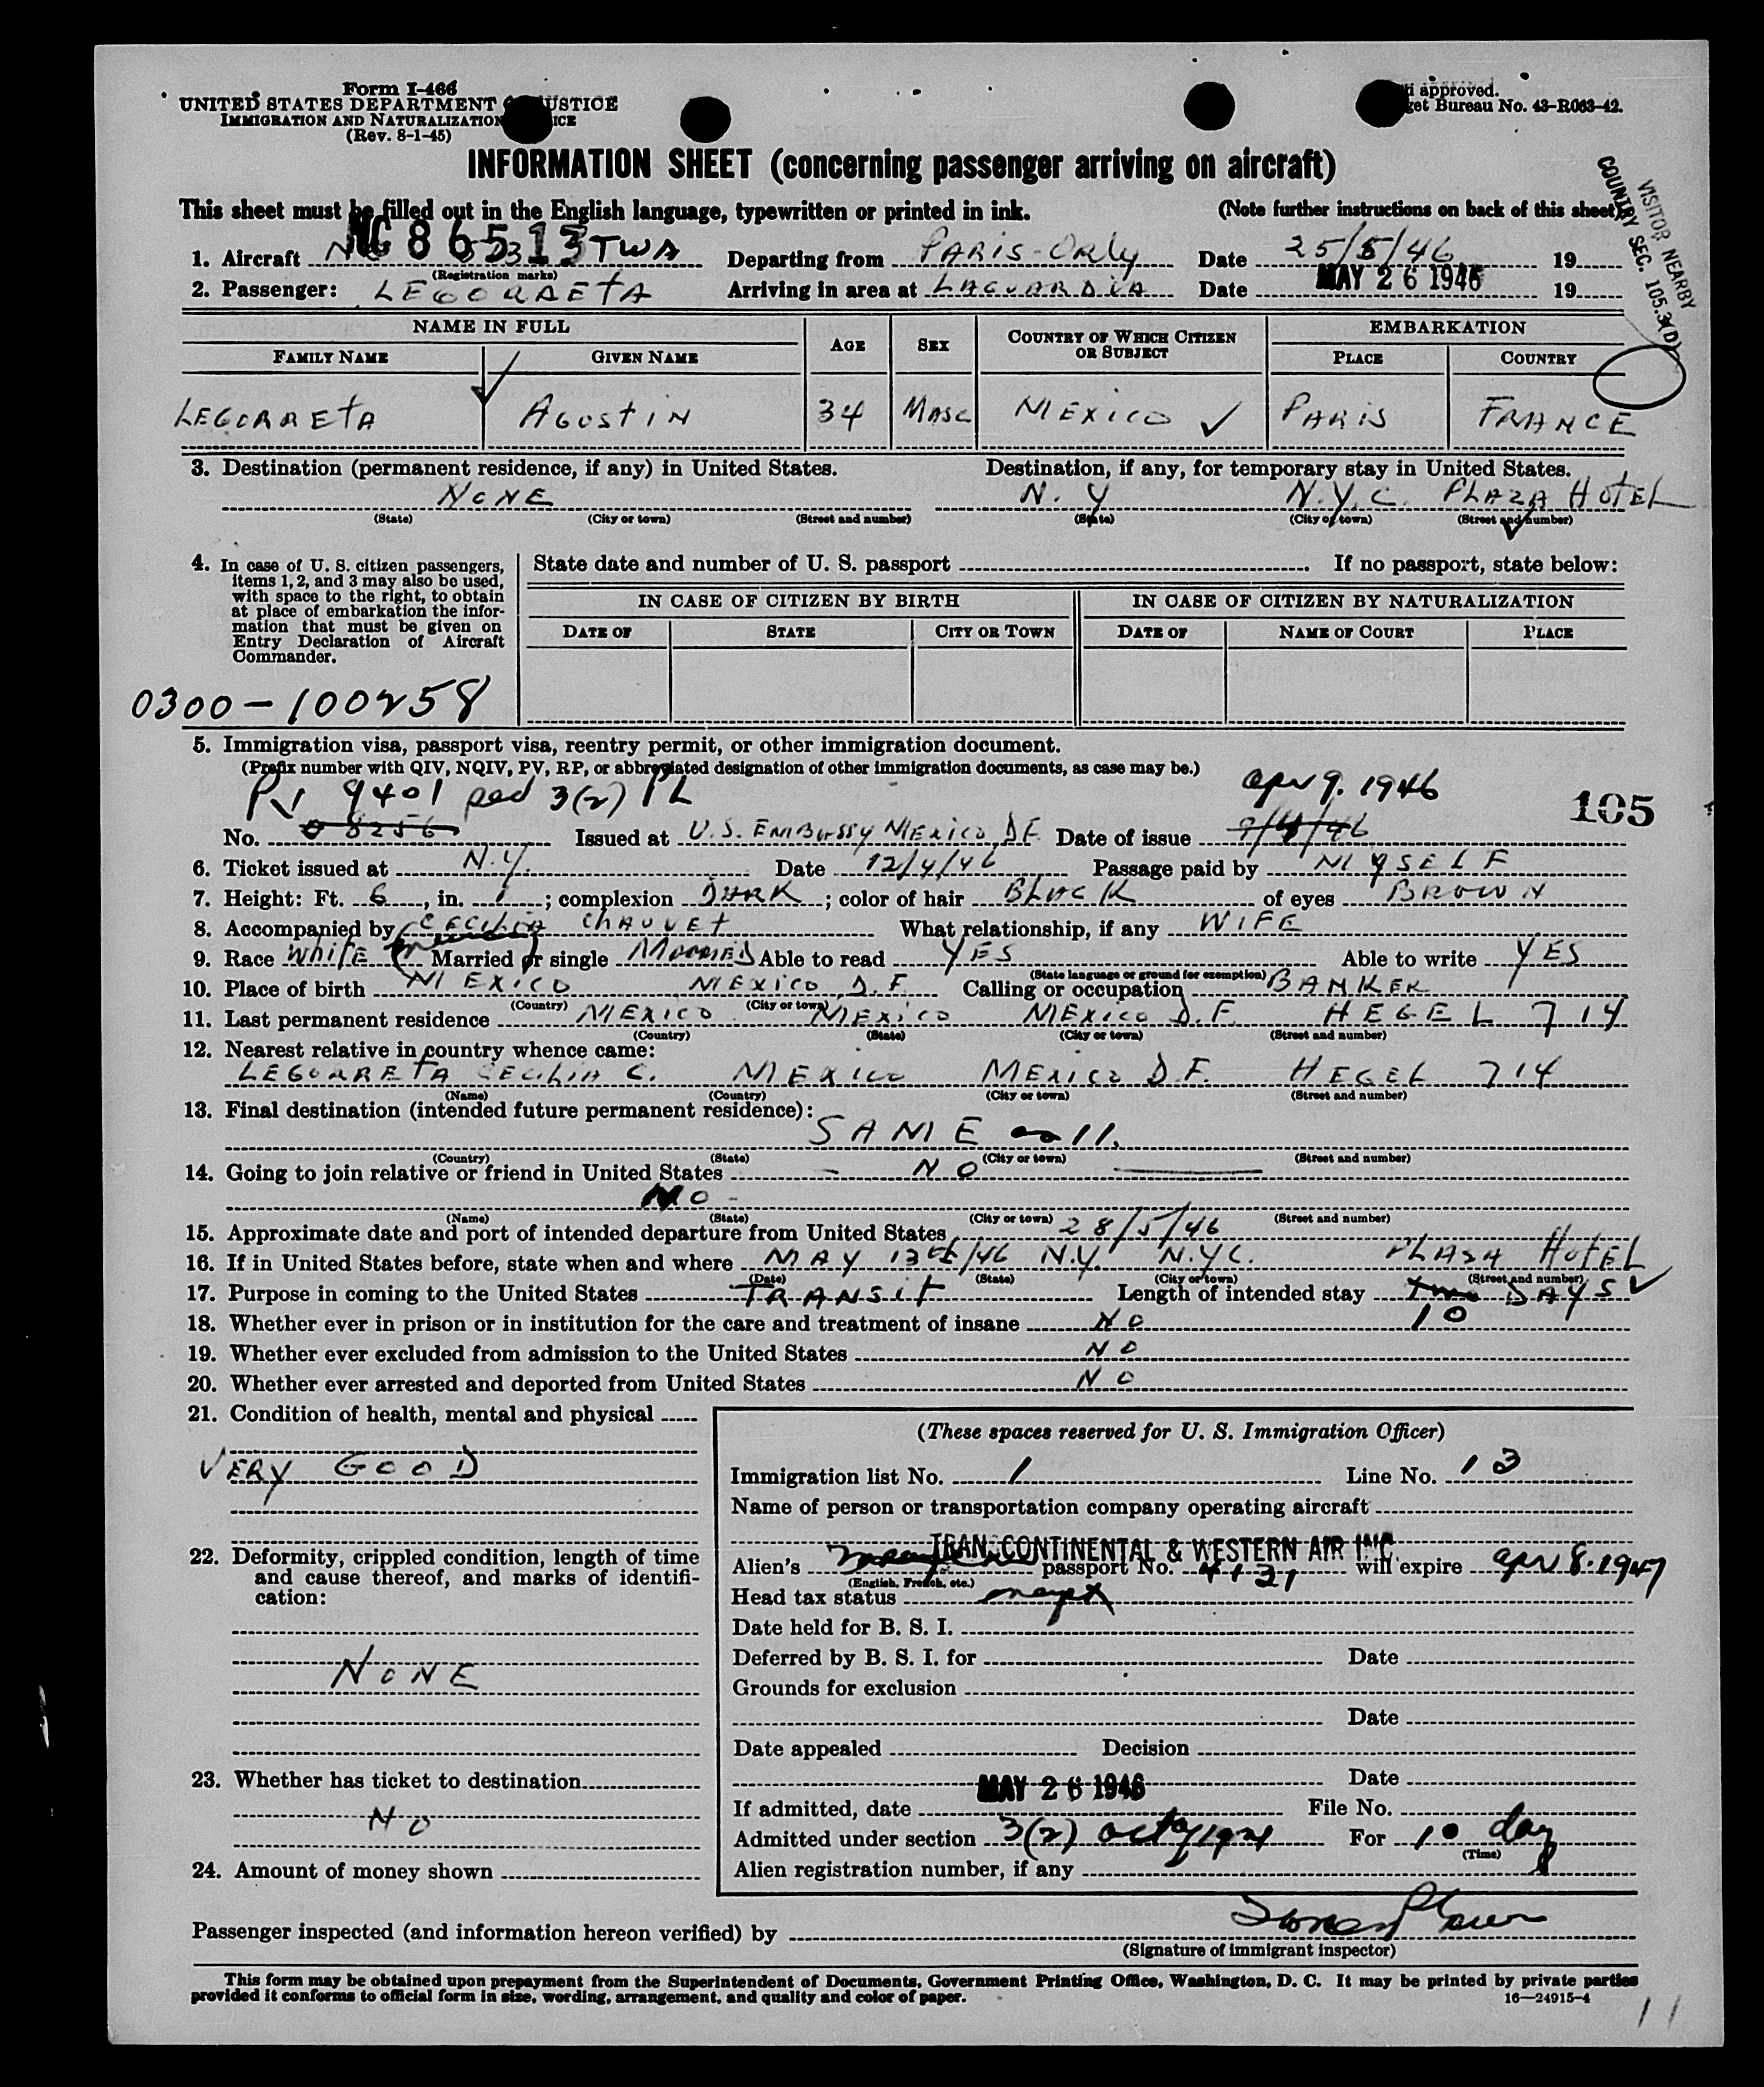 Form I-466
UNITED STATES DEPARTMENT JUSTICE
IMMIGRATION AND NATURALIZATION
(Rev. 8-1-45)
approved.
Bureau No. 43-R063-42.
INFORMATION SHEET (concerning passenger arriving on aircraft)
This sheet must be filled out in the English language, typewritten or printed in ink. (Note further instructions on back of this sheet)
VISITOR NEARBY
COUNTRY SEC. 105.3(D)
1. Aircraft NC 86513 TWA Departing from PARIS-ORLY Date 25/5/46 19
(Registration marks)
2. Passenger: LEGORRETA Arriving in area at LAGUARDIA Date MAY 26 1946 19
NAME IN FULL AGE SEX COUNTRY OF WHICH CITIZEN OR SUBJECT EMBARKATION
FAMILY NAME GIVEN NAME PLACE COUNTRY
LEGORRETA AGUSTIN 34 MASC MEXICO PARIS FRANCE
3. Destination (permanent residence, if any) in United States. Destination, if any, for temporary stay in United States.
NONE N.Y N.Y.C. PLAZA HOTEL
(State) (City or town) (Street and number) (State) (City or town) (Street and number)
4. In case of U. S. citizen passengers, items 1, 2, and 3 may also be used, with space to the right, to obtain at place of embarkation the information that must be given on Entry Declaration of Aircraft Commander.
State date and number of U. S. passport . If no passport, state below:
IN CASE OF CITIZEN BY BIRTH IN CASE OF CITIZEN BY NATURALIZATION
DATE OF STATE CITY OR TOWN DATE OF NAME OF COURT PLACE
0300-100258
5. Immigration visa, passport visa, reentry permit, or other immigration document.
(Prefix number with QIV, NQIV, PV, RP, or abbreviated designation of other immigration documents, as case may be.)
PV 9401 3(2) PL Apr 9. 1946 105
No. 8256 Issued at U.S. EMBASSY MEXICO D.F. Date of issue 9/4/46
6. Ticket issued at N.Y. Date 12/4/46 Passage paid by MYSELF
7. Height: Ft. 6, in. 1; complexion DARK; color of hair BLACK of eyes BROWN
8. Accompanied by CECILIA CHAUVET What relationship, if any WIFE
9. Race WHITE Married or single MARRIED Able to read YES Able to write YES
(State language or ground for exemption)
10. Place of birth MEXICO MEXICO D.F. Calling or occupation BANKER
(Country) (City or town)
11. Last permanent residence MEXICO MEXICO MEXICO D.F. HEGEL 714
(Country) (State) (City or town) (Street and number)
12. Nearest relative in country whence came:
LEGORRETA CECILIA C. MEXICO MEXICO D.F. HEGEL 714
(Name) (Country) (City or town) (Street and number)
13. Final destination (intended future permanent residence):
SAME as 11.
(Country) (State) (City or town) (Street and number)
14. Going to join relative or friend in United States NO
NO
(Name) (State) (City or town) (Street and number)
15. Approximate date and port of intended departure from United States 28/5/46
16. If in United States before, state when and where MAY 13th/46 N.Y. N.Y.C. PLASA HOTEL
(Date) (State) (City or town) (Street and number)
17. Purpose in coming to the United States TRANSIT Length of intended stay two DAYS
10
18. Whether ever in prison or in institution for the care and treatment of insane NO
19. Whether ever excluded from admission to the United States NO
20. Whether ever arrested and deported from United States NO
21. Condition of health, mental and physical
VERY GOOD
22. Deformity, crippled condition, length of time and cause thereof, and marks of identification:
NONE
23. Whether has ticket to destination
NO
24. Amount of money shown
(These spaces reserved for U. S. Immigration Officer)
Immigration list No. 1 Line No. 13
Name of person or transportation company operating aircraft
TRANSCONTINENTAL & WESTERN AIR INC.
Alien's passport No. 4121 will expire Apr 8. 1947
(English, French, etc.)
Head tax status
Date held for B. S. I.
Deferred by B. S. I. for Date
Grounds for exclusion
Date
Date appealed Decision
Date
If admitted, date MAY 26 1946 File No.
Admitted under section 3(2) act of 1924 For 10 days
(Time)
Alien registration number, if any
Passenger inspected (and information hereon verified) by
(Signature of immigrant inspector)
This form may be obtained upon prepayment from the Superintendent of Documents, Government Printing Office, Washington, D. C. It may be printed by private parties
provided it conforms to official form in size, wording, arrangement, and quality and color of paper.
16—24915-4
11